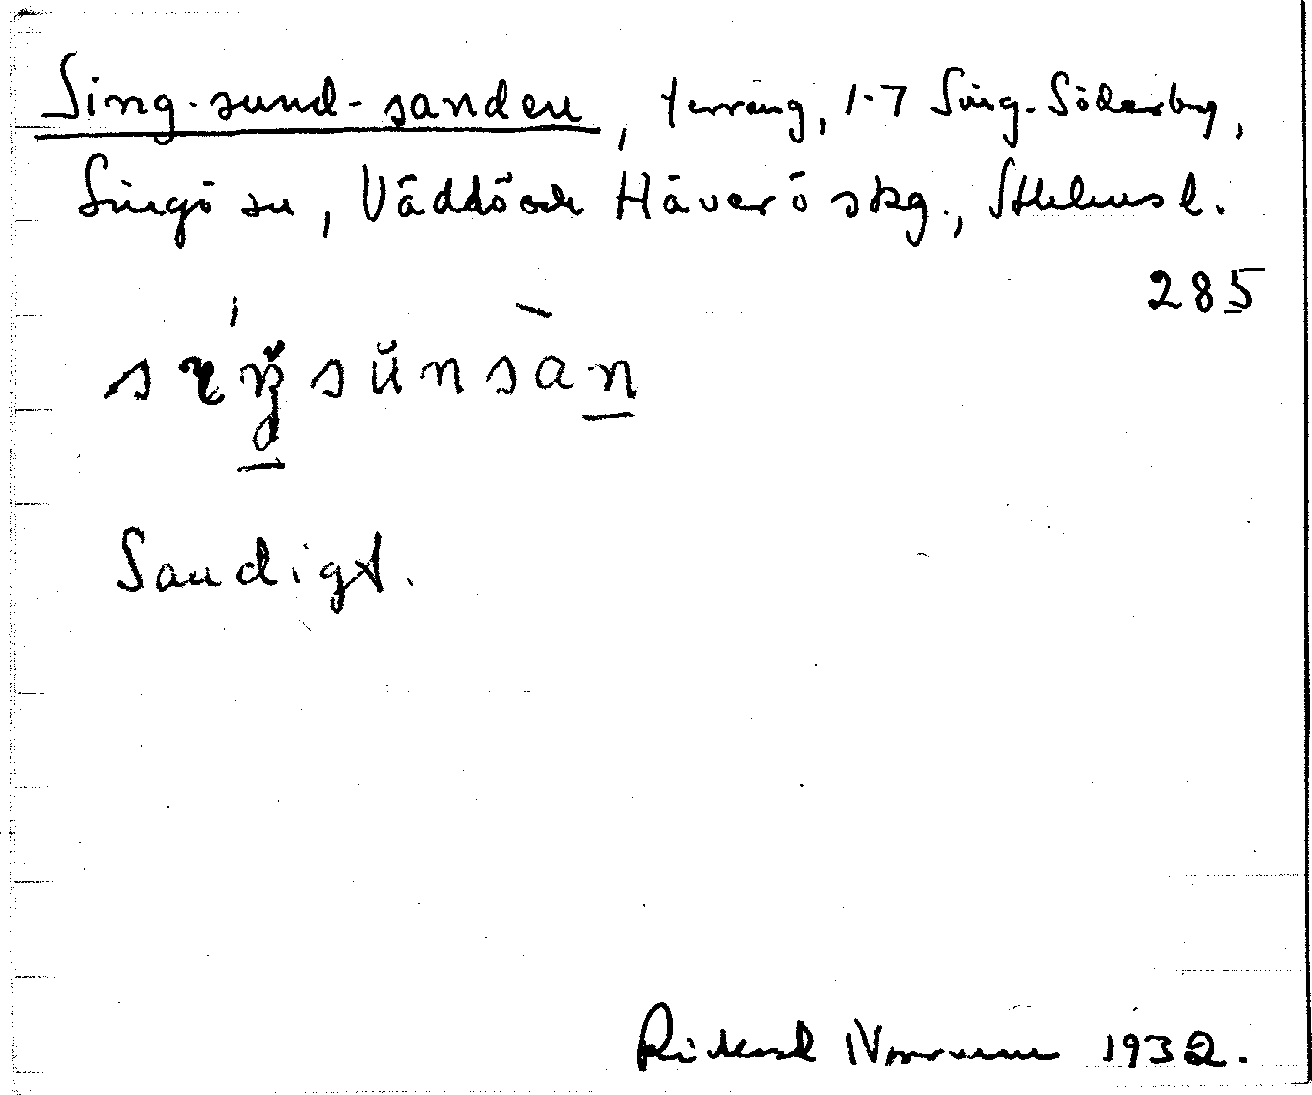 Sing-sund-sanden, terräng, 1-7 Sing-Söderby,
Singö sn, Väddö och Häverö skg., Sthlms l.
285
sɪŋsŭnsàn
Sandigt.
Rickard Norrman 1932.